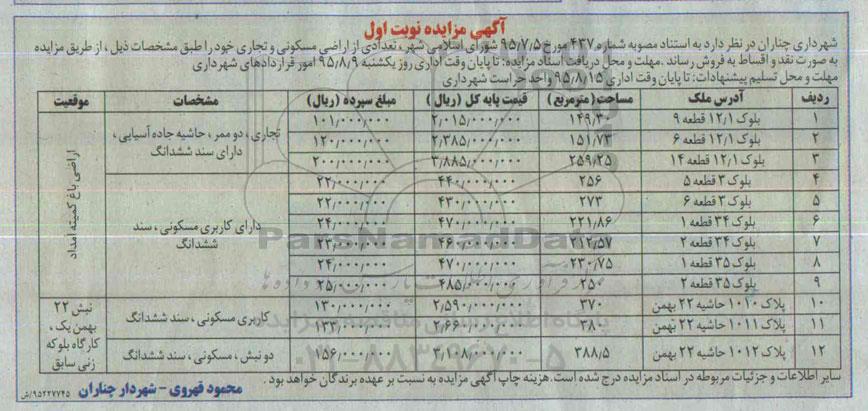 آگهی مزایده نوبت اول
شهرداری چناران در نظر دارد به استناد مصوبه شماره ۴۳۷ مورخ ۹۵/۷/۵ شورای اسلامی شهر، تعدادی از اراضی مسکونی و تجاری خود را طبق مشخصات ذیل، از طریق مزایده
به صورت نقد و اقساط به فروش رساند. مهلت و محل دریافت اسناد مزایده: تا پایان وقت اداری روز یکشنبه ۹۵/۸/۹ امور قراردادهای شهرداری
مهلت و محل تسلیم پیشنهادات: تا پایان وقت اداری ۹۵/۸/۱۵ واحد حراست شهرداری
ردیف آدرس ملک مساحت (مترمربع) قیمت پایه کل (ریال) مبلغ سپرده (ریال) مشخصات موقعیت
۱ بلوک ۱۲/۱ قطعه ۹ ۱۴۹/۳۰ ۲/۰۱۵/۰۰۰/۰۰۰ ۱۰۱/۰۰۰/۰۰۰ تجاری، دو ممر، حاشیه جاده آسیایی، دارای سند ششدانگ اراضی باغ کمیته امداد
۲ بلوک ۱۲/۱ قطعه ۶ ۱۵۱/۷۳ ۲/۳۸۵/۰۰۰/۰۰۰ ۱۲۰/۰۰۰/۰۰۰
۳ بلوک ۱۲/۱ قطعه ۱۴ ۲۵۹/۲۵ ۳/۸۸۵/۰۰۰/۰۰۰ ۲۰۰/۰۰۰/۰۰۰
۴ بلوک ۳ قطعه ۵ ۲۵۶ ۴۴۰/۰۰۰/۰۰۰ ۲۲/۰۰۰/۰۰۰ دارای کاربری مسکونی، سند ششدانگ
۵ بلوک ۳ قطعه ۶ ۲۷۳ ۴۳۰/۰۰۰/۰۰۰ ۲۲/۰۰۰/۰۰۰
۶ بلوک ۳۴ قطعه ۱ ۲۲۱/۸۶ ۴۷۰/۰۰۰/۰۰۰ ۲۴/۰۰۰/۰۰۰
۷ بلوک ۳۴ قطعه ۲ ۲۱۲/۵۷ ۴۶۰/۰۰۰/۰۰۰ ۲۳/۰۰۰/۰۰۰
۸ بلوک ۳۵ قطعه ۱ ۲۳۰/۷۵ ۴۷۰/۰۰۰/۰۰۰ ۲۴/۰۰۰/۰۰۰
۹ بلوک ۳۵ قطعه ۲ ۲۵۰ ۴۸۵/۰۰۰/۰۰۰ ۲۵/۰۰۰/۰۰۰
۱۰ پلاک ۱۰۱۰ حاشیه ۲۲ بهمن ۳۷۰ ۲/۵۹۰/۰۰۰/۰۰۰ ۱۳۰/۰۰۰/۰۰۰ کاربری مسکونی، سند ششدانگ نبش ۲۲ بهمن یک، کارگاه بلوکه زنی سابق
۱۱ پلاک ۱۰۱۱ حاشیه ۲۲ بهمن ۳۸۰ ۲/۶۶۰/۰۰۰/۰۰۰ ۱۳۳/۰۰۰/۰۰۰
۱۲ پلاک ۱۰۱۲ حاشیه ۲۲ بهمن ۳۸۸/۵ ۳/۱۰۸/۰۰۰/۰۰۰ ۱۵۶/۰۰۰/۰۰۰ دو نبش، مسکونی، سند ششدانگ
سایر اطلاعات و جزئیات مربوطه در اسناد مزایده درج شده است. هزینه چاپ آگهی مزایده به نسبت بر عهده برندگان خواهد بود.
محمود قهروی - شهردار چناران
۹۵۲۲۷۷۴۵/ش
ParsNamadData
۰۲۱-۸۸۳۴۹۶۷۰-۵